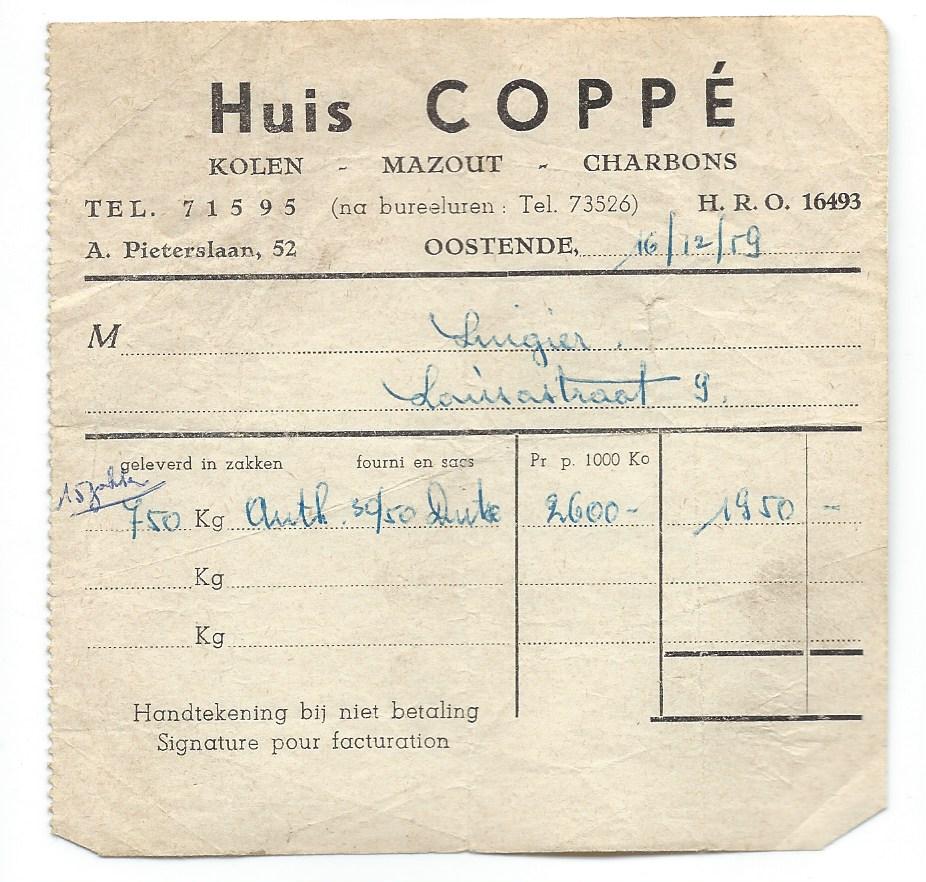 Huis COPPÉ
KOLEN - MAZOUT - CHARBONS
TEL. 71595 (na bureeluren : Tel. 73526) H. R. O. 16493
A. Pieterslaan, 52 OOSTENDE, 16/12/59
M
Louisastraat 9.
geleverd in zakken fourni en sacs Pr p. 1000 Ko
15 zakken
750 Kg Anth. 30/50 2600- 1950 -
Kg
Kg
Handtekening bij niet betaling
Signature pour facturation